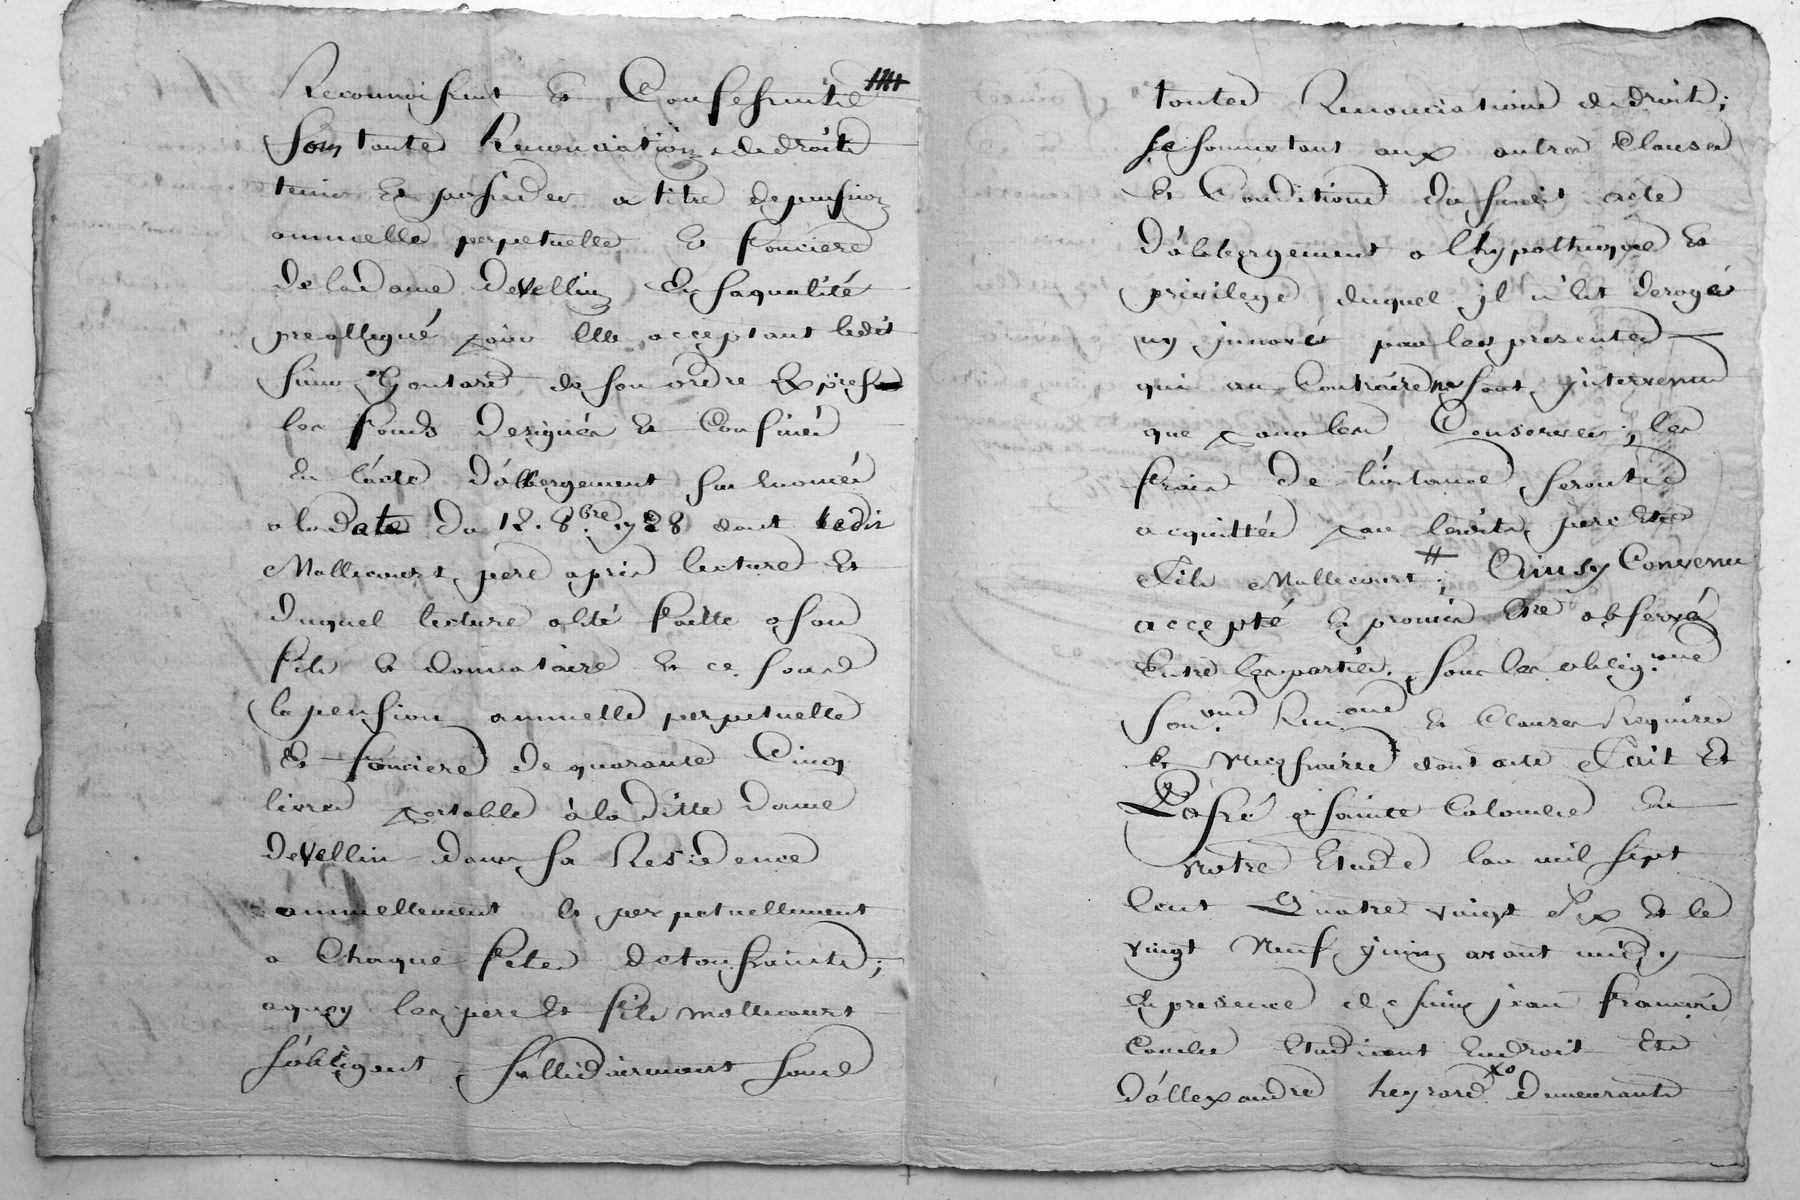 Reconnoissent et Confessent
sous toutes Renonciations de droits
tenir et posseder a titre de pension
annuelle perpetuelle et fonciere
de la Dame Devellin En sa qualité
preallegué pour Elle acceptant ledit
sieur Goutard de son ordre Exprès
les fonds designés et Confinés
En l'acte d'albergement sus Enoncé
a la Date du 12. 8bre. 1728 dont ledit
Mallicourt pere après lecture et
duquel lecture a été faitte a son
fils et donnataire et ce sous
la pension annuelle perpetuelle
et fonciere de quarante Cinq
livres portable à la ditte dame
Devellin dans sa Residence
annuellement et perpetuellement
a Chaque fetes de toussaints;
a quoy les pere et fils mallicourt
s'obligent sollidairement sous
toutes Renonciations de droits;
se soumettant aux autres Clauses
et Conditions du susdit acte
d'albergement a l'hypotheque et
privilege duquel il n'Est derogé
ny innové par les presentes
qui au Contraire ne sont intervenu
que pour les Conserver, les
frais de l'instance seront
acquittés par lesdits pere et
fils Mallicourt; Ainsy Convenu
accepté et promis Etre observé
Entre les parties, sous les oblig.ons
soum.ons Ren.ons et Clauses Requises
et necessaires dont acte Fait et
Passé a sainte Colombe En
notre Etude l'an mil sept
Cent Quatre vingt dix et le
vingt Neuf juin avant midy
En presence de sieur jean françois
Combe Etudiant En droit et
d'allexandre heyrard demeurants